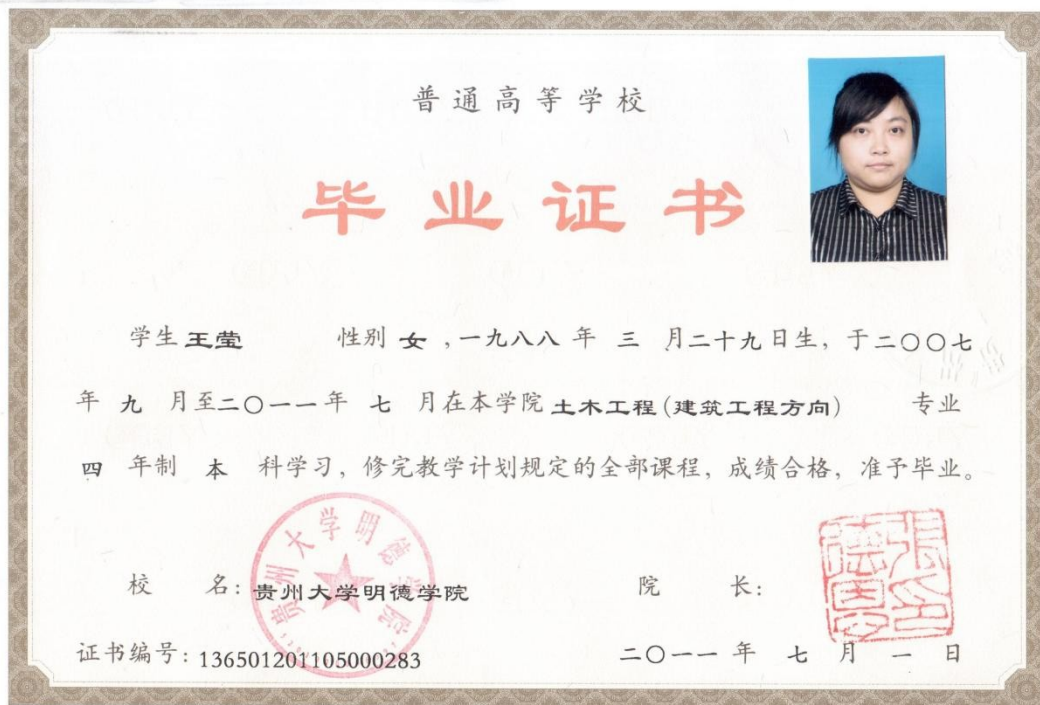 普通高等学校
毕业证书
学生 王莹 性别 女 ,一九八八 年 三 月二十九日生, 于二〇〇七
年 九 月至二〇一一年 七 月在本学院 土木工程(建筑工程方向) 专业
四 年制 本 科学习, 修完教学计划规定的全部课程, 成绩合格, 准予毕业。
贵州大学明德学院
校 名: 贵州大学明德学院 院 长:
证书编号: 136501201105000283 二〇一一 年 七 月 一 日